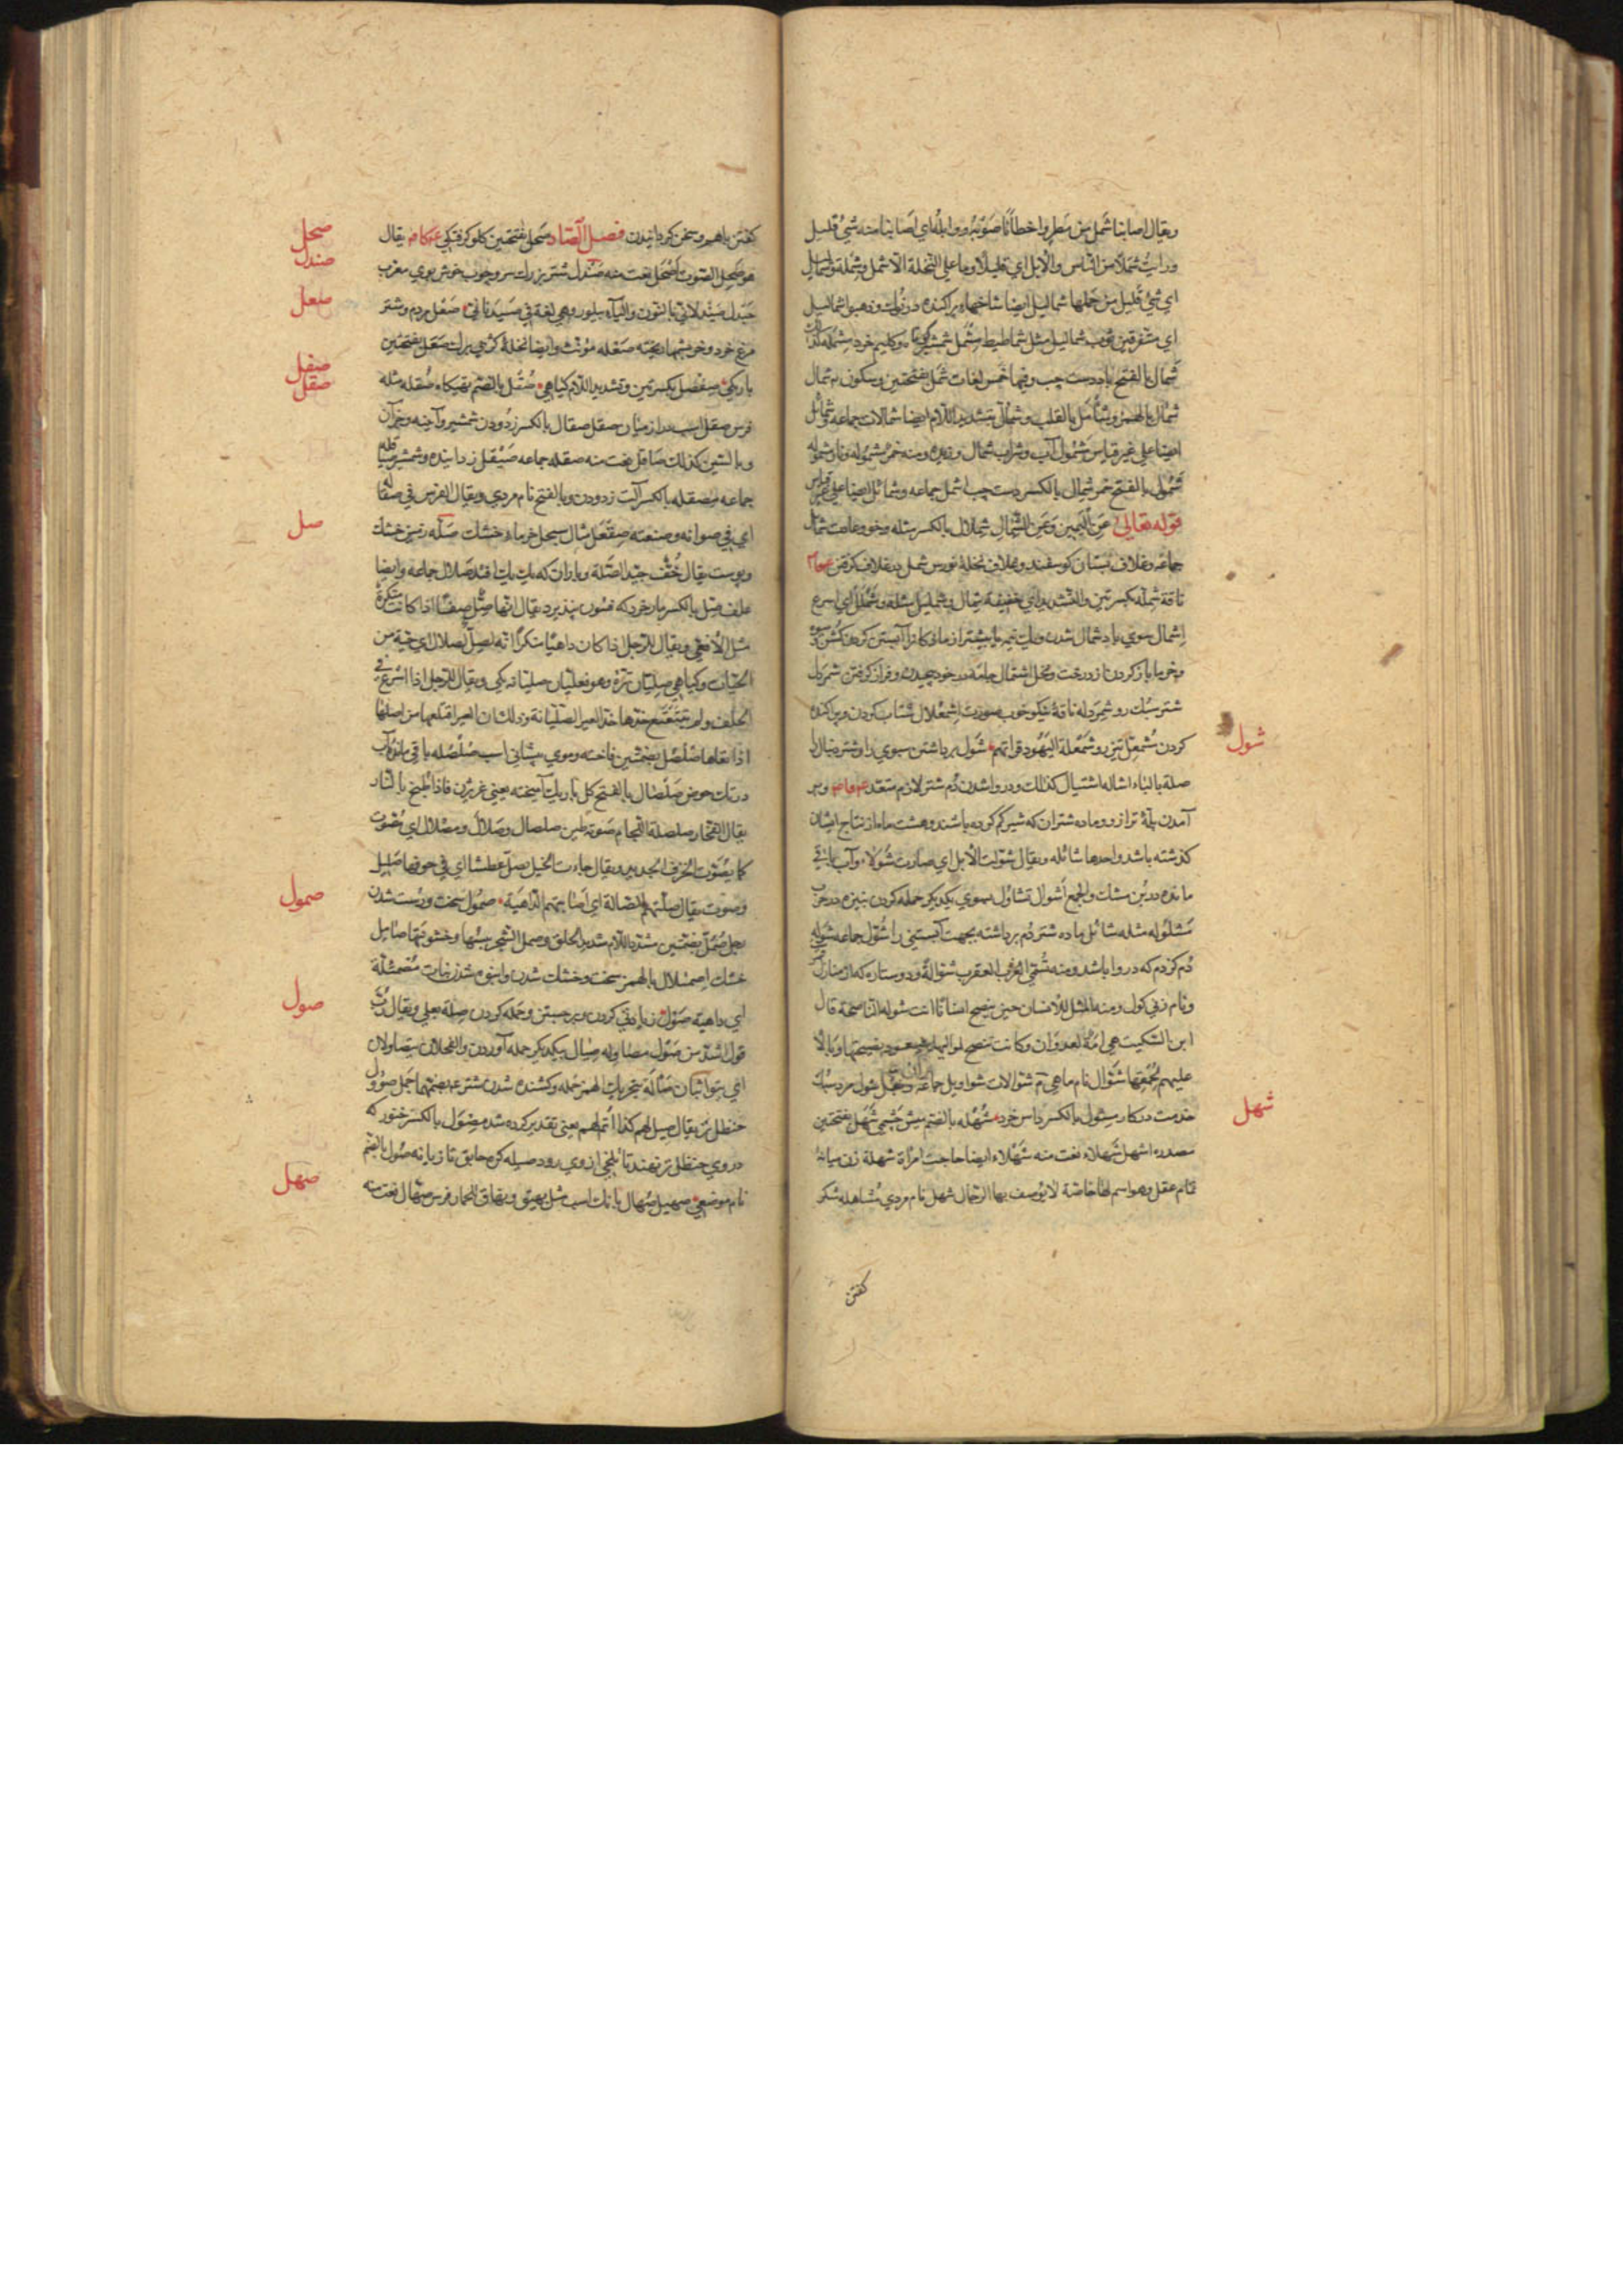 ويقال اصابنا شمل من مطر واخطأنا صوبه ووابله اي اصابنا منه شئ قليل
ورايت شملا من الناس والابل اي قليلا وما على النخلة الا شمل وشملة وشماليل
اي شئ قليل من حملها شماليل ايضا شاخهاء پراكنده وذهبوا شماليل
اي متفرقين ثوب شماليل مثل شماطيط مشمل شمشير وكليم خرد مشمله كذلك
شمال بالفتح باد دست چپ وفيها خمس لغات شمل بفتحتين وسكون نم شمال
شمأل بالهمز وشأمل بالقلب وشمأل بتشديد اللام ايضا شمالات جماعه وشمائل
ايضا على غير قياس شمول آب وشراب شمال وزيده ومنه خمر مشموله ونار مشموله
شمول بالفتح خمر شمال بالكسر دست چپ اشمل جماعه وشمائل ايضا على غير قياس
قوله تعالى عن اليمين وعن الشمال شملال بالكسر مثله وخو وعادت شمائل
جماعه وغلاف پستان كوسفند وغلاف نخلهٔ نورس شمل در غلاف كرفتن
ناقة شملة بكسرتين والتشديد اي خفيفة شمال وشمليل مثله وشملل اي اسرع
اشمال سوي باد شمال شدن
وخرما باز كردن از درخت ونخل اشتمال جامه در خود پيچيدن وفراز كرفتن شمردل
شتر سبك رو شمردله ناقهٔ نيكو خوب صورت اشمعلال شتاب كردن وپراكنده
كردن مشمعل تيز رو شمعلة اليهود قراتهم شول برداشتن سبوي را وشتر دنبال را
صلة بالباء اشاله اشتيال كذلك ودروا شدن دم شتر لازم متعد وبر
آمدن پلهٔ ترازو وماده شتران كه شير كم كرده باشند وهشت ماه از نتاج ايشان
كذشته باشد واحدها شائله ويقال شولت الابل اي صارت شولاء وآب باقي
مانده در بن مشك والجمع اشوال تشاول بسوي يكديكر حمله كردن بنيزه در حرب
مثله شائل ماده شتر دم برداشته بجهت آبستني را شول جماعه شوله
دم كژدم كه دروا باشد ومنه تسمى العرب العقرب شوالة ودو ستاره كه از منازل قمر
ونام زني كول ومنه المثل للانسان حين ينصح انسانا انت شولة الناصحة قال
ابن السكيت هي امة لعدوان وكانت تنصح لمواليها فيعود نصيحتها وبالا
عليهم لحمقها شوال نام ماهي شوالات شواويل جماعه رجل شول مرد سبك
خدمت دركار مشول بالكسر داس خرد شهله بالضم ميش چشمي شهل بفتحتين
مصدره اشهل شهلاء نعت منه شهلاء ايضا حاجت امرأة شهلة زن ميانه
تمام عقل وهو اسم لها خاصة لا يوصف بها الرجال شهل نام مردي مشاهله شكر
شول
شهل
كفتن
كفتن باهم وسخن كردانيدن فصل الصاد صحل بفتحتين كلو كرفتكي يقال
هو صحل الصوت اصحل نعت منه صندل شتر بزرك سر وچوب خوش بوي معرب
چندل صيدلاني بالنون والياء پيلور وهي لغة في صيدناني صعل مردم وشتر
مرغ خرد وخرمنهاد ريخته صعله مؤنث وايضا نخلهٔ كژ بي برك صعل بفتحتين
باريكي صفصل بكسرتين وتشديد اللام كياهي صقل بالضم تهيكاه صقله مثله
فرس صقل اسب دراز ميان صقل صقال بالكسر زدودن شمشير وآينه وجز آن
وبالسين كذلك صاقل نعت منه صقله جماعه صيقل زداينده وشمشير صياقله
جماعه مصقله بالكسر آلت زدودن وبالفتح نام مردي ويقال الفرس في صقاله
اي في صوانه وصنعته صقعل مثال سبحل خرماء خشك صلة زمين خشك
وپوست يقال خف جيد الصلة وباران كه يك يك افتد صلال جماعه وايضا
علف صل بالكسر مار خرد كه فسون نپذيرد يقال انها صل صفا اذا كانت منكرة
مثل الافعى ويقال للرجل اذا كان داهيا منكرا انه لصل اصلال اي حية من
الحيات وكياهي صليان تره وهو فعليان صليانه يكي ويقال للرجل اذا اسرع في
الحلف ولم يتتعتع جذها جذ العير الصليانة وذلك ان العير اقتلعها من اصلها
اذا رعاها صلصل بضمتين فاخته وموي پيشاني اسب صلصله باقي مانده آب
در تك حوض صلصال بالفتح كل با ريك آميخته يعني غريژن فاذا طبخ بالنار
يقال الفخار صلصلة اللجام صوته طين صلصال وصلال ومصلال اي مصوت
كما يصوت الخزف الجديد ويقال جاءت الخيل تصل عطشا اي في جوفها صليل
وصوت يقال صلتهم الصالة اي اصابتهم الداهية صمول سخت ودرشت شدن
رجل صمل بضمتين مشدد اللام شديد الخلق وصمل الشجر يبسها وخشونتها صامل
خشك اصمئلال بالهمز سخت وخشك شدن وانبوه شدن نبات مصمئلة
اي داهية صول زيادتي كردن وبرجستن وحمله كردن صلة بعلى ويقال رب
قول اشد من صول مصاوله صيال بيكديكر حمله آوردن والفحلان يتصاولان
اي يتواثبان صآلة بتحريك الهمز حمله وكشنده شدن شتر جمل صؤول
حنظل يقال صيل لهم كذا اتم لهم يعني تقدير كرده شد مصول بالكسر خنور كه
در وي حنظل تر نهند تا تلخي از وي رود صول بالضم
نام موضعي صهيل صهال بانك اسب مثل نهيق ونهاق الحمار فرس صهال نعت منه
صحل
صندل
صعل
صفصل
صقل
صل
صمول
صول
صهل